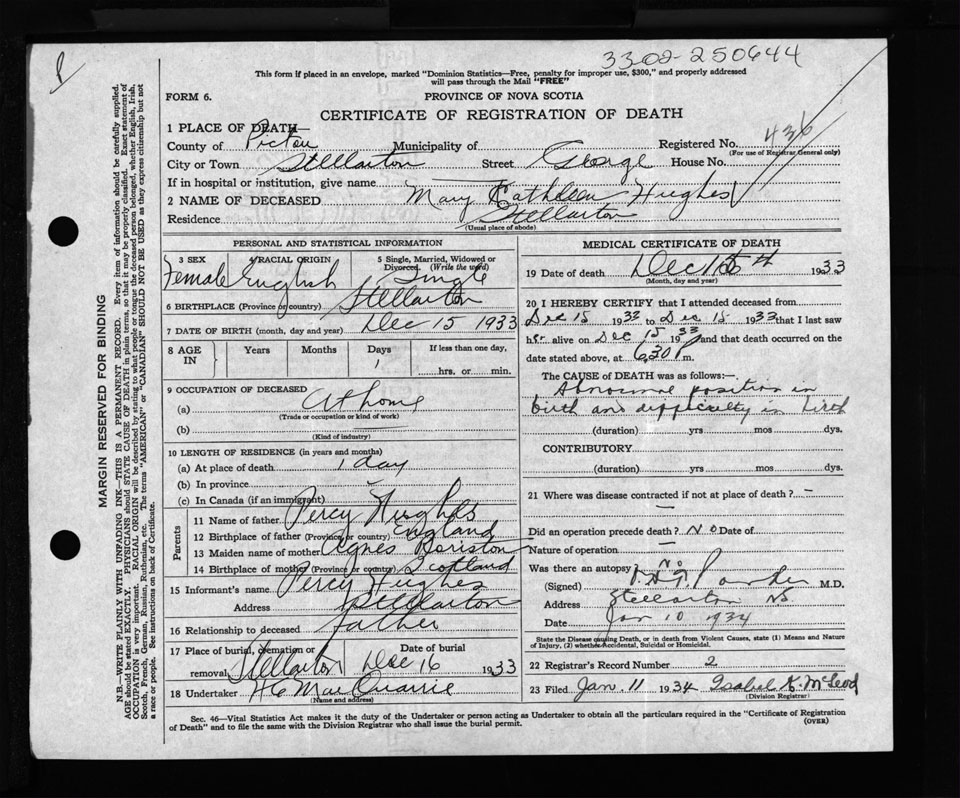 3302-250644
This form if placed in an envelope, marked "Dominion Statistics—Free, penalty for improper use, $300," and properly addressed
will pass through the Mail "FREE"
FORM 6.
PROVINCE OF NOVA SCOTIA
CERTIFICATE OF REGISTRATION OF DEATH
MARGIN RESERVED FOR BINDING
N.B.—WRITE PLAINLY WITH UNFADING INK—THIS IS A PERMANENT RECORD. Every item of information should be carefully supplied.
AGE should be stated EXACTLY. PHYSICIANS should STATE CAUSE OF DEATH in plain terms, so that it may be properly classified. Exact statement of
OCCUPATION is very important. RACIAL ORIGIN will be described by stating to what people or tongue the deceased person belonged, whether English, Irish,
Scotch, French, German, Russian, Ruthenian, etc. The terms "AMERICAN" or "CANADIAN" SHOULD NOT BE USED as they express citizenship but not
a race or people. See instructions on back of Certificate.
1 PLACE OF DEATH—
County of Pictou Municipality of Registered No. 436
(For use of Registrar General only)
City or Town Stellarton Street George House No.
If in hospital or institution, give name
2 NAME OF DECEASED Mary Kathleen Hughes
Residence Stellarton
(Usual place of abode)
PERSONAL AND STATISTICAL INFORMATION
3 SEX Female
4 RACIAL ORIGIN English
5 Single, Married, Widowed or
Divorced. (Write the word) Single
6 BIRTHPLACE (Province or country) Stellarton
7 DATE OF BIRTH (month, day and year) Dec 15 1933
8 AGE IN Years Months Days 1 If less than one day,
hrs. or min.
9 OCCUPATION OF DECEASED
(a) At home
(Trade or occupation or kind of work)
(b)
(Kind of industry)
10 LENGTH OF RESIDENCE (in years and months)
(a) At place of death 1 day
(b) In province
(c) In Canada (if an immigrant)
Parents
11 Name of father Percy Hughes
12 Birthplace of father (Province or country) England
13 Maiden name of mother Agnes
14 Birthplace of mother (Province or country) Scotland
15 Informant's name Percy Hughes
Address Stellarton
16 Relationship to deceased father
17 Place of burial, cremation or removal Stellarton Date of burial Dec 16 1933
18 Undertaker H C MacQuarrie
(Name and address)
MEDICAL CERTIFICATE OF DEATH
19 Date of death Dec 15th 1933
(Month, day and year)
20 I HEREBY CERTIFY that I attended deceased from
Dec 15 1933 to Dec 15 1933 that I last saw
her alive on Dec 15 1933 and that death occurred on the
date stated above, at 6.30 m.
The CAUSE of DEATH was as follows:—
Abnormal position in
birth and difficulty in birth
(duration) yrs mos dys.
CONTRIBUTORY
(duration) yrs mos dys.
21 Where was disease contracted if not at place of death? —
—
Did an operation precede death? No Date of
Nature of operation
Was there an autopsy No
(Signed) M.D.
Address Stellarton NS
Date Jan 10 1934
State the Disease causing Death, or in death from Violent Causes, state (1) Means and Nature
of Injury, (2) whether Accidental, Suicidal or Homicidal.
22 Registrar's Record Number 2
23 Filed Jan. 11 1934 Isabel K. McLeod
(Division Registrar)
Sec. 46—Vital Statistics Act makes it the duty of the Undertaker or person acting as Undertaker to obtain all the particulars required in the "Certificate of Registration
of Death" and to file the same with the Division Registrar who shall issue the burial permit.
(OVER)